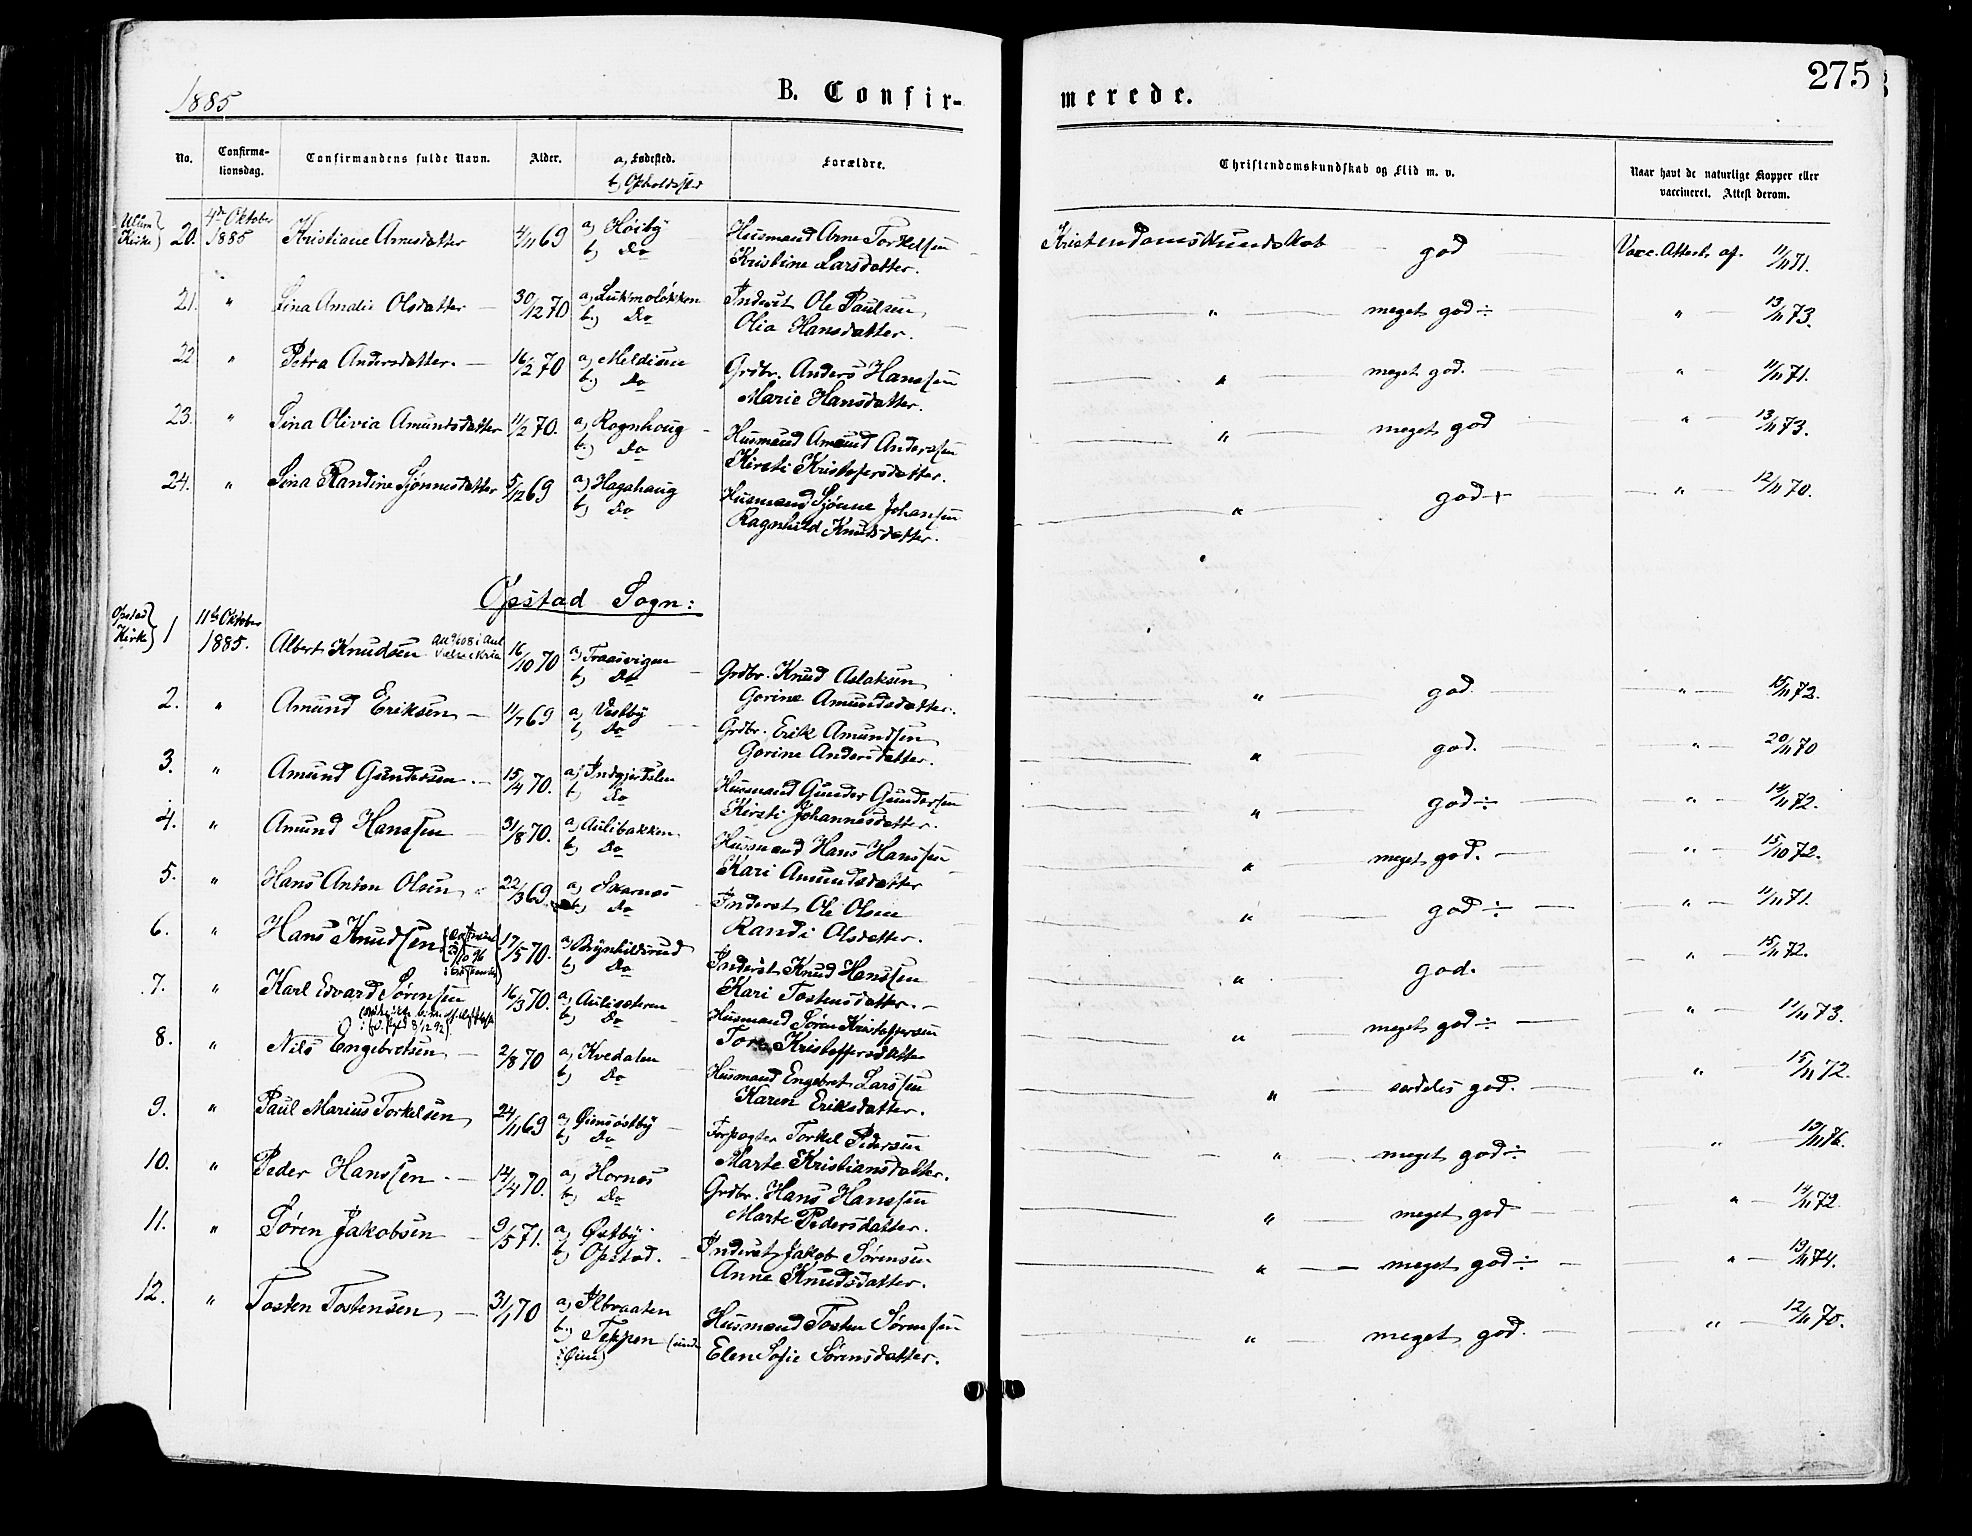 1885
B. Confir-
merede.
275
No. Confirma-tionsdag. Confirmandens fulde Navn. Alder. a, Fødested. b, Opholdssted Forældre. Christendomskundskab og Flid m. v. Naar havt de naturlige Kopper eller vaccineret. Attest derom.
Ullern Kirke} 20. 4de Oktober 1885 Kristiane Arnesdatter 4/11 69 a, Høiby Husmand Arne Torkelsen Kristendomskundskab god Vacc. Attest af. 11/11 71.
b, Do Kristine Larsdatter.
21. " Lina Amalie Olsdatter 30/12 70 a, Lukmoløkken Inderst Ole Paulsen " meget god ÷ " 13/11 73.
b, Do Olia Hansdatter.
22 " Petra Andersdatter. 16/2 70 a, Meldieie Grdbr. Anders Hanssen " meget god. " 11/11 71.
b, Do Marie Hansdatter.
23. " Tina Olivia Amundsdatter 11/2 70. a, Rognhoug Husmand Amund Anderssen " meget god " 13/11 73.
b, Do Kirsti Kristofersdatter.
24. " Lina Randine Sjønnesdatter 5/12 69 a, Hagahaug Husmand Sjønne Johansen " god + " 12/11 70.
b, Do Ragnhild Knudsdatter.
Opstad Sogn:
Opstad Kirke} 1 11te Oktober 1885. Albert Knudsen 16/10 70 a, Fraasvigen Grdbr. Knud Aslaksen " god. " 15/11 72.
b, Do Gorine Amundsdatter.
2. " Amund Eriksen 11/7 69 a, Vestby Grdbr. Erik Amundsen " god. " 20/11 70
b, Do Gorine Andersdatter.
3. " Amund Gundersen. 15/4 70. a, Indgjerdslen Husmand Gunder Gundersen " god ÷ " 14/11 72.
b, Do Kirsti Johannesdatter.
4. " Amund Hanssen 31/8 70. a, Aulibakken. Husmand Hans Hanssen " meget god. " 15/10 72.
b, Do Kari Amundsdatter
5. " Hans Anton Olsen 22/3 69. a, Skarnes Inderst Ole Olsen " god ÷ " 11/11 71.
b, Do Randi Olsdatter.
6. " Hans Knudsen 17/5 70. a, Brynhildsrud Inderst Knud Hanssen " god. " 15/11 72.
b, Do Kari Tostensdatter.
7. " Karl Edvard Sørensen 16/3 70. a, Aulisæteren Husmand Søren Kristoffersen " meget god ÷ " 11/11 73.
b, Do Tore Kristoffersdatter
8. " Nils Engebretsen 2/8 70 a, Kvedalen Husmand Engebret Larssen " særdeles god. " 15/11 72.
b, Do Karen Eriksdatter.
9. " Paul Marius Torkelsen 24/11 69 a, Oimsøstby Forpagter Torkel Pedersen " meget god ÷ " 13/11 76.
b, Do Marte Kristiansdatter.
10. " Peder Hanssen. 14/4 70. a, Hornes Grdbr. Hans Hanssen " meget god " 14/11 72.
b, Do Marte Pedersdatter.
11. " Søren Jakobsen 9/5 71. a, Østby Inderst Jakob Sørensen " meget god ÷ " 13/11 74.
b, Opstad. Anne Knudsdatter.
12. " Tosten Tostensen 31/1 70 a, Ilbraaten Husmand Tosten Sørensen " meget god. " 12/11 70.
b, Teppen (under Oien) Elen Sofie Sørensdatter.